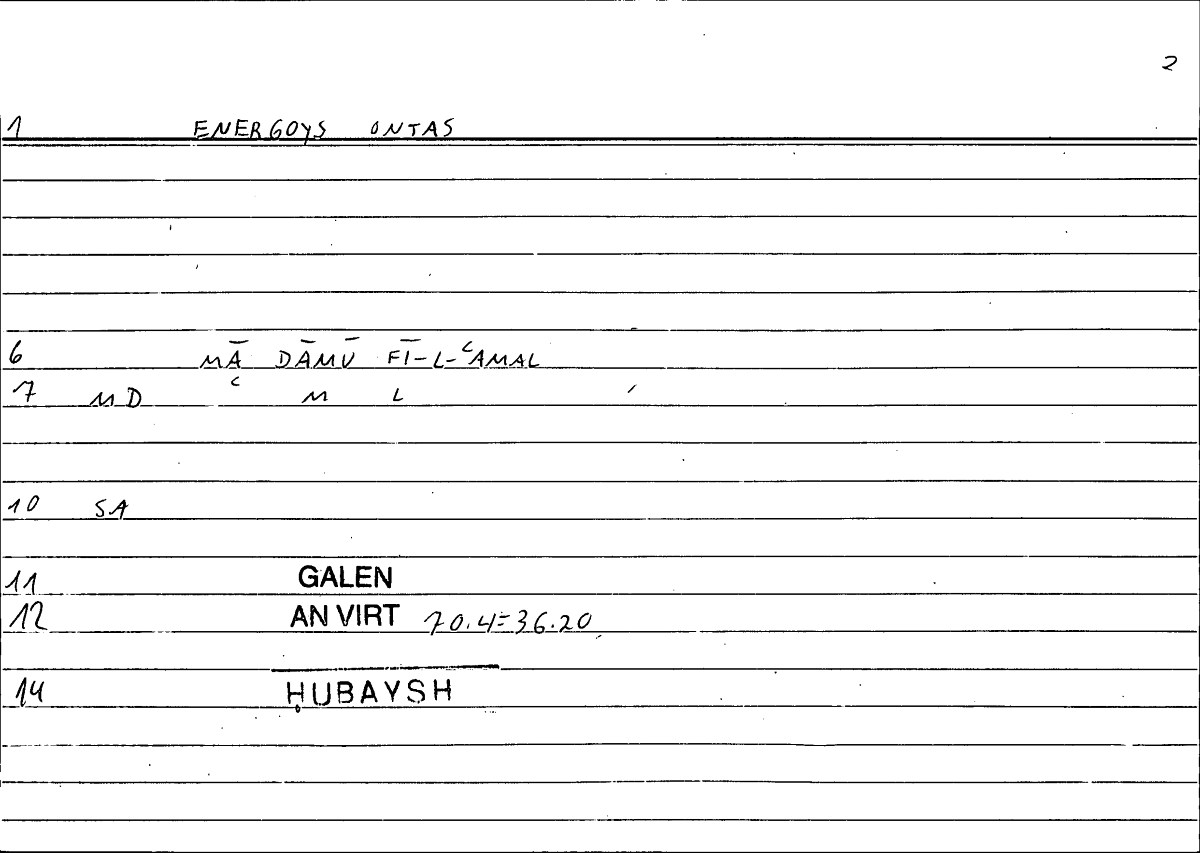 2
1 ENERGOYS ONTAS
6 MĀ DĀMŪ FĪ-L-ʿAMAL
7 MD ʿ M L
10 SA
11 GALEN
12 AN VIRT 70.4=36.20
14 ḤUBAYSH